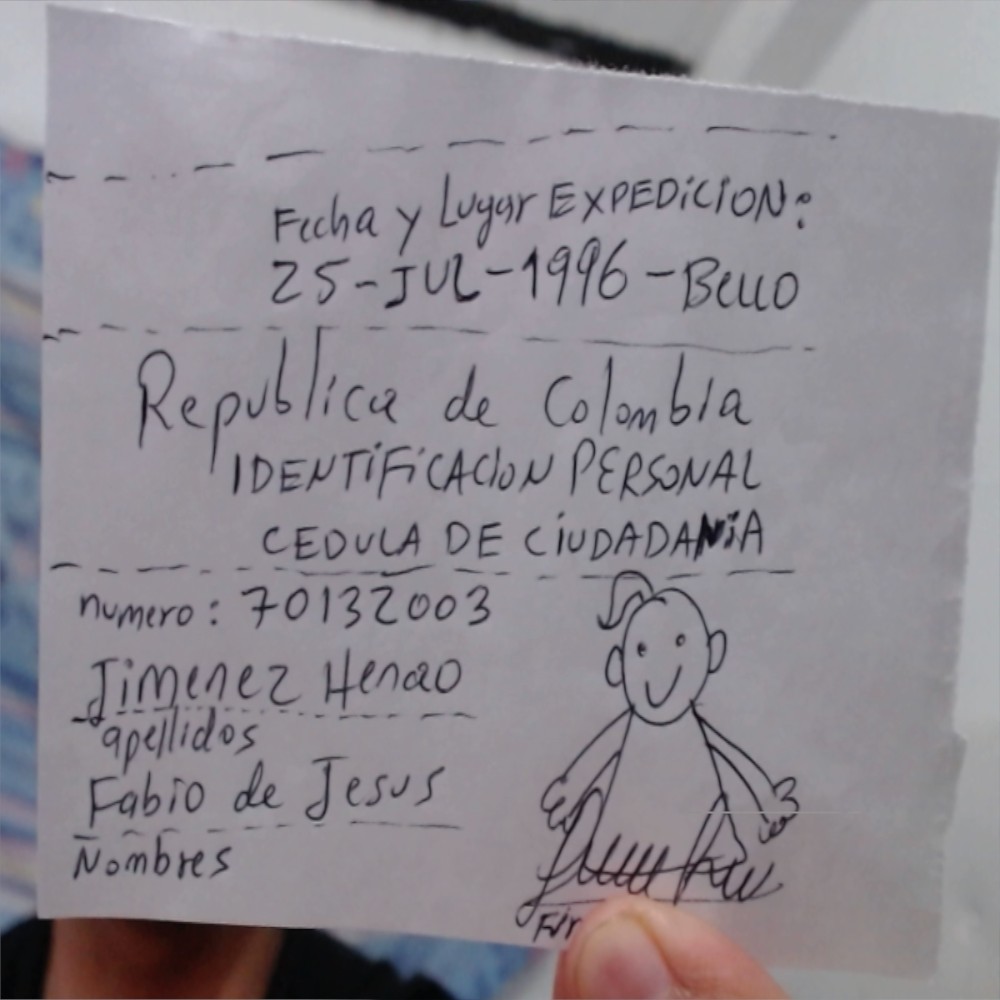 Fecha y Lugar EXPEDICION:
25-JUL-1996-Bello
Republica de Colombia
IDENTIFICACION PERSONAL
CEDULA DE CIUDADANIA
numero: 70132003
Jimenez Henao
apellidos
Fabio de Jesus
Nombres